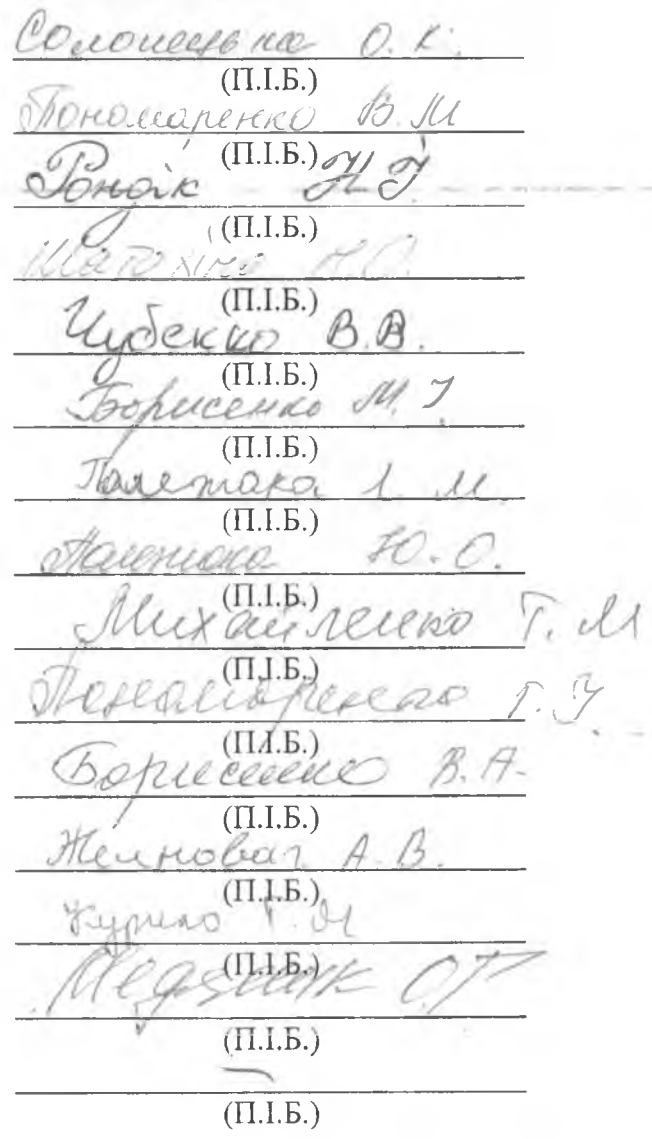 Солонецька О. К.
(П.І.Б.)
Пономаренко В. М
(П.І.Б.)
Ронжік Н І
(П.І.Б.)
Шатохіна Н.О.
(П.І.Б.)
Чубенко В.В.
(П.І.Б.)
Борисенко М. І
(П.І.Б.)
Палетака Л. М.
(П.І.Б.)
Палетака Ю. О.
(П.І.Б.)
Михайленко Т. М
(П.І.Б.)
Пономаренко Г. І
(П.І.Б.)
Борисенко В. А.
(П.І.Б.)
А. В.
(П.І.Б.)
Курило Г. М
(П.І.Б.)
Медяник О.Г
(П.І.Б.)
(П.І.Б.)